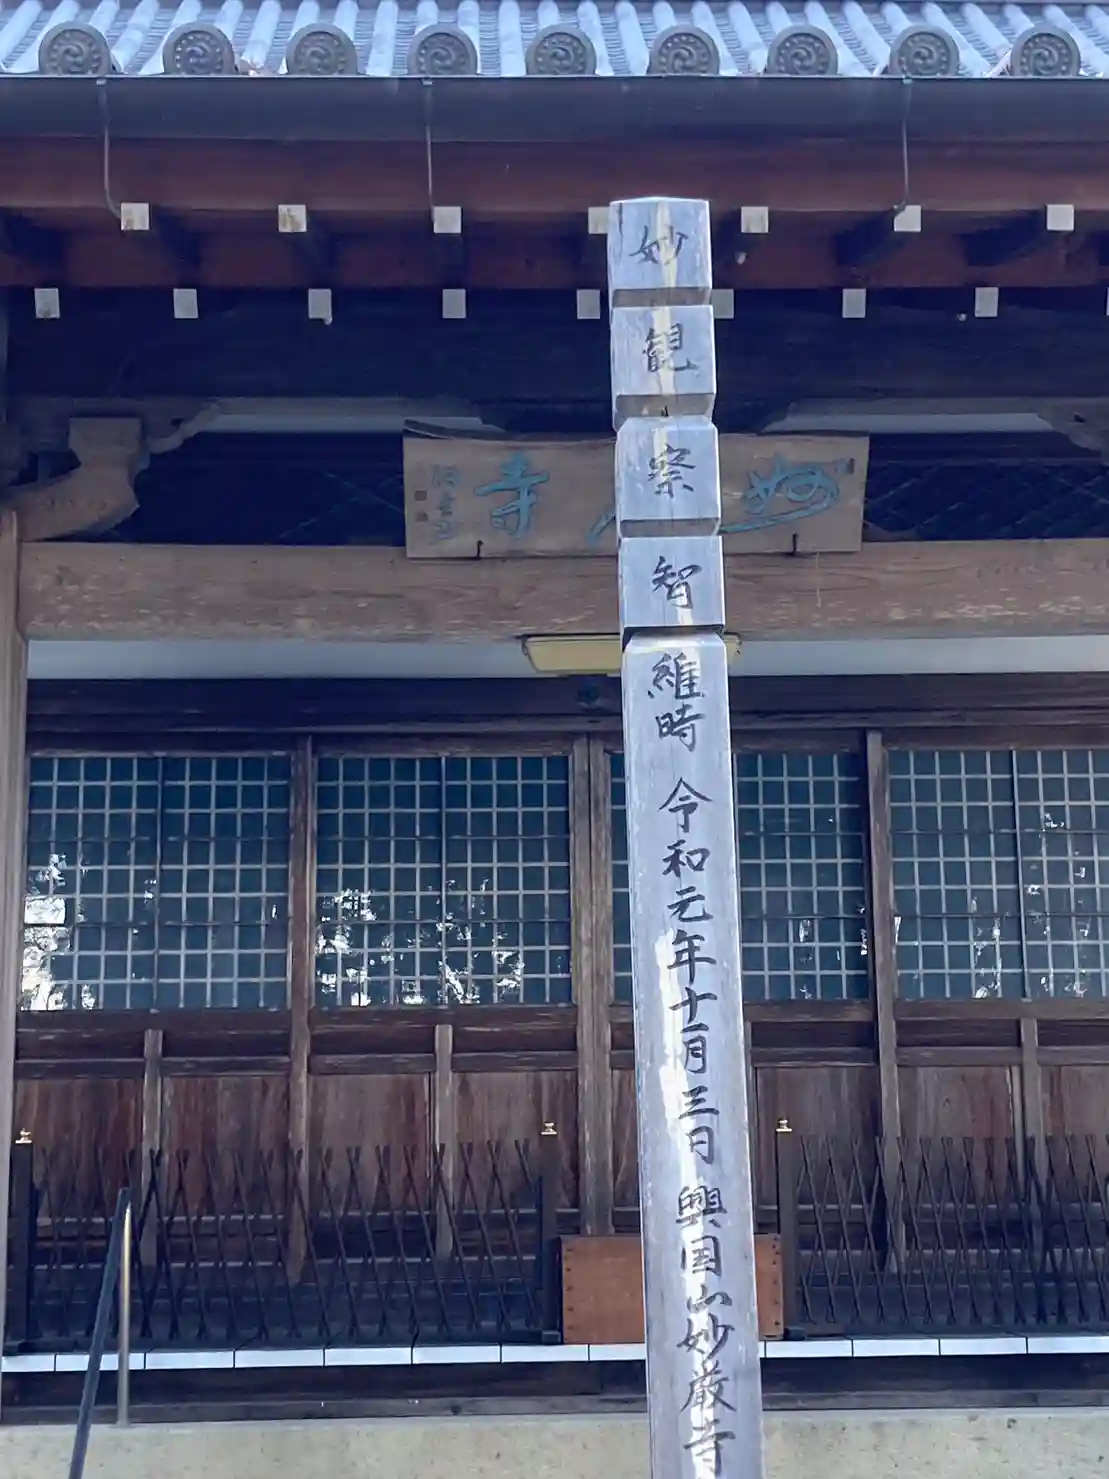 妙観察智維時 令和元年十一月三日 興国山妙厳寺
妙
寺